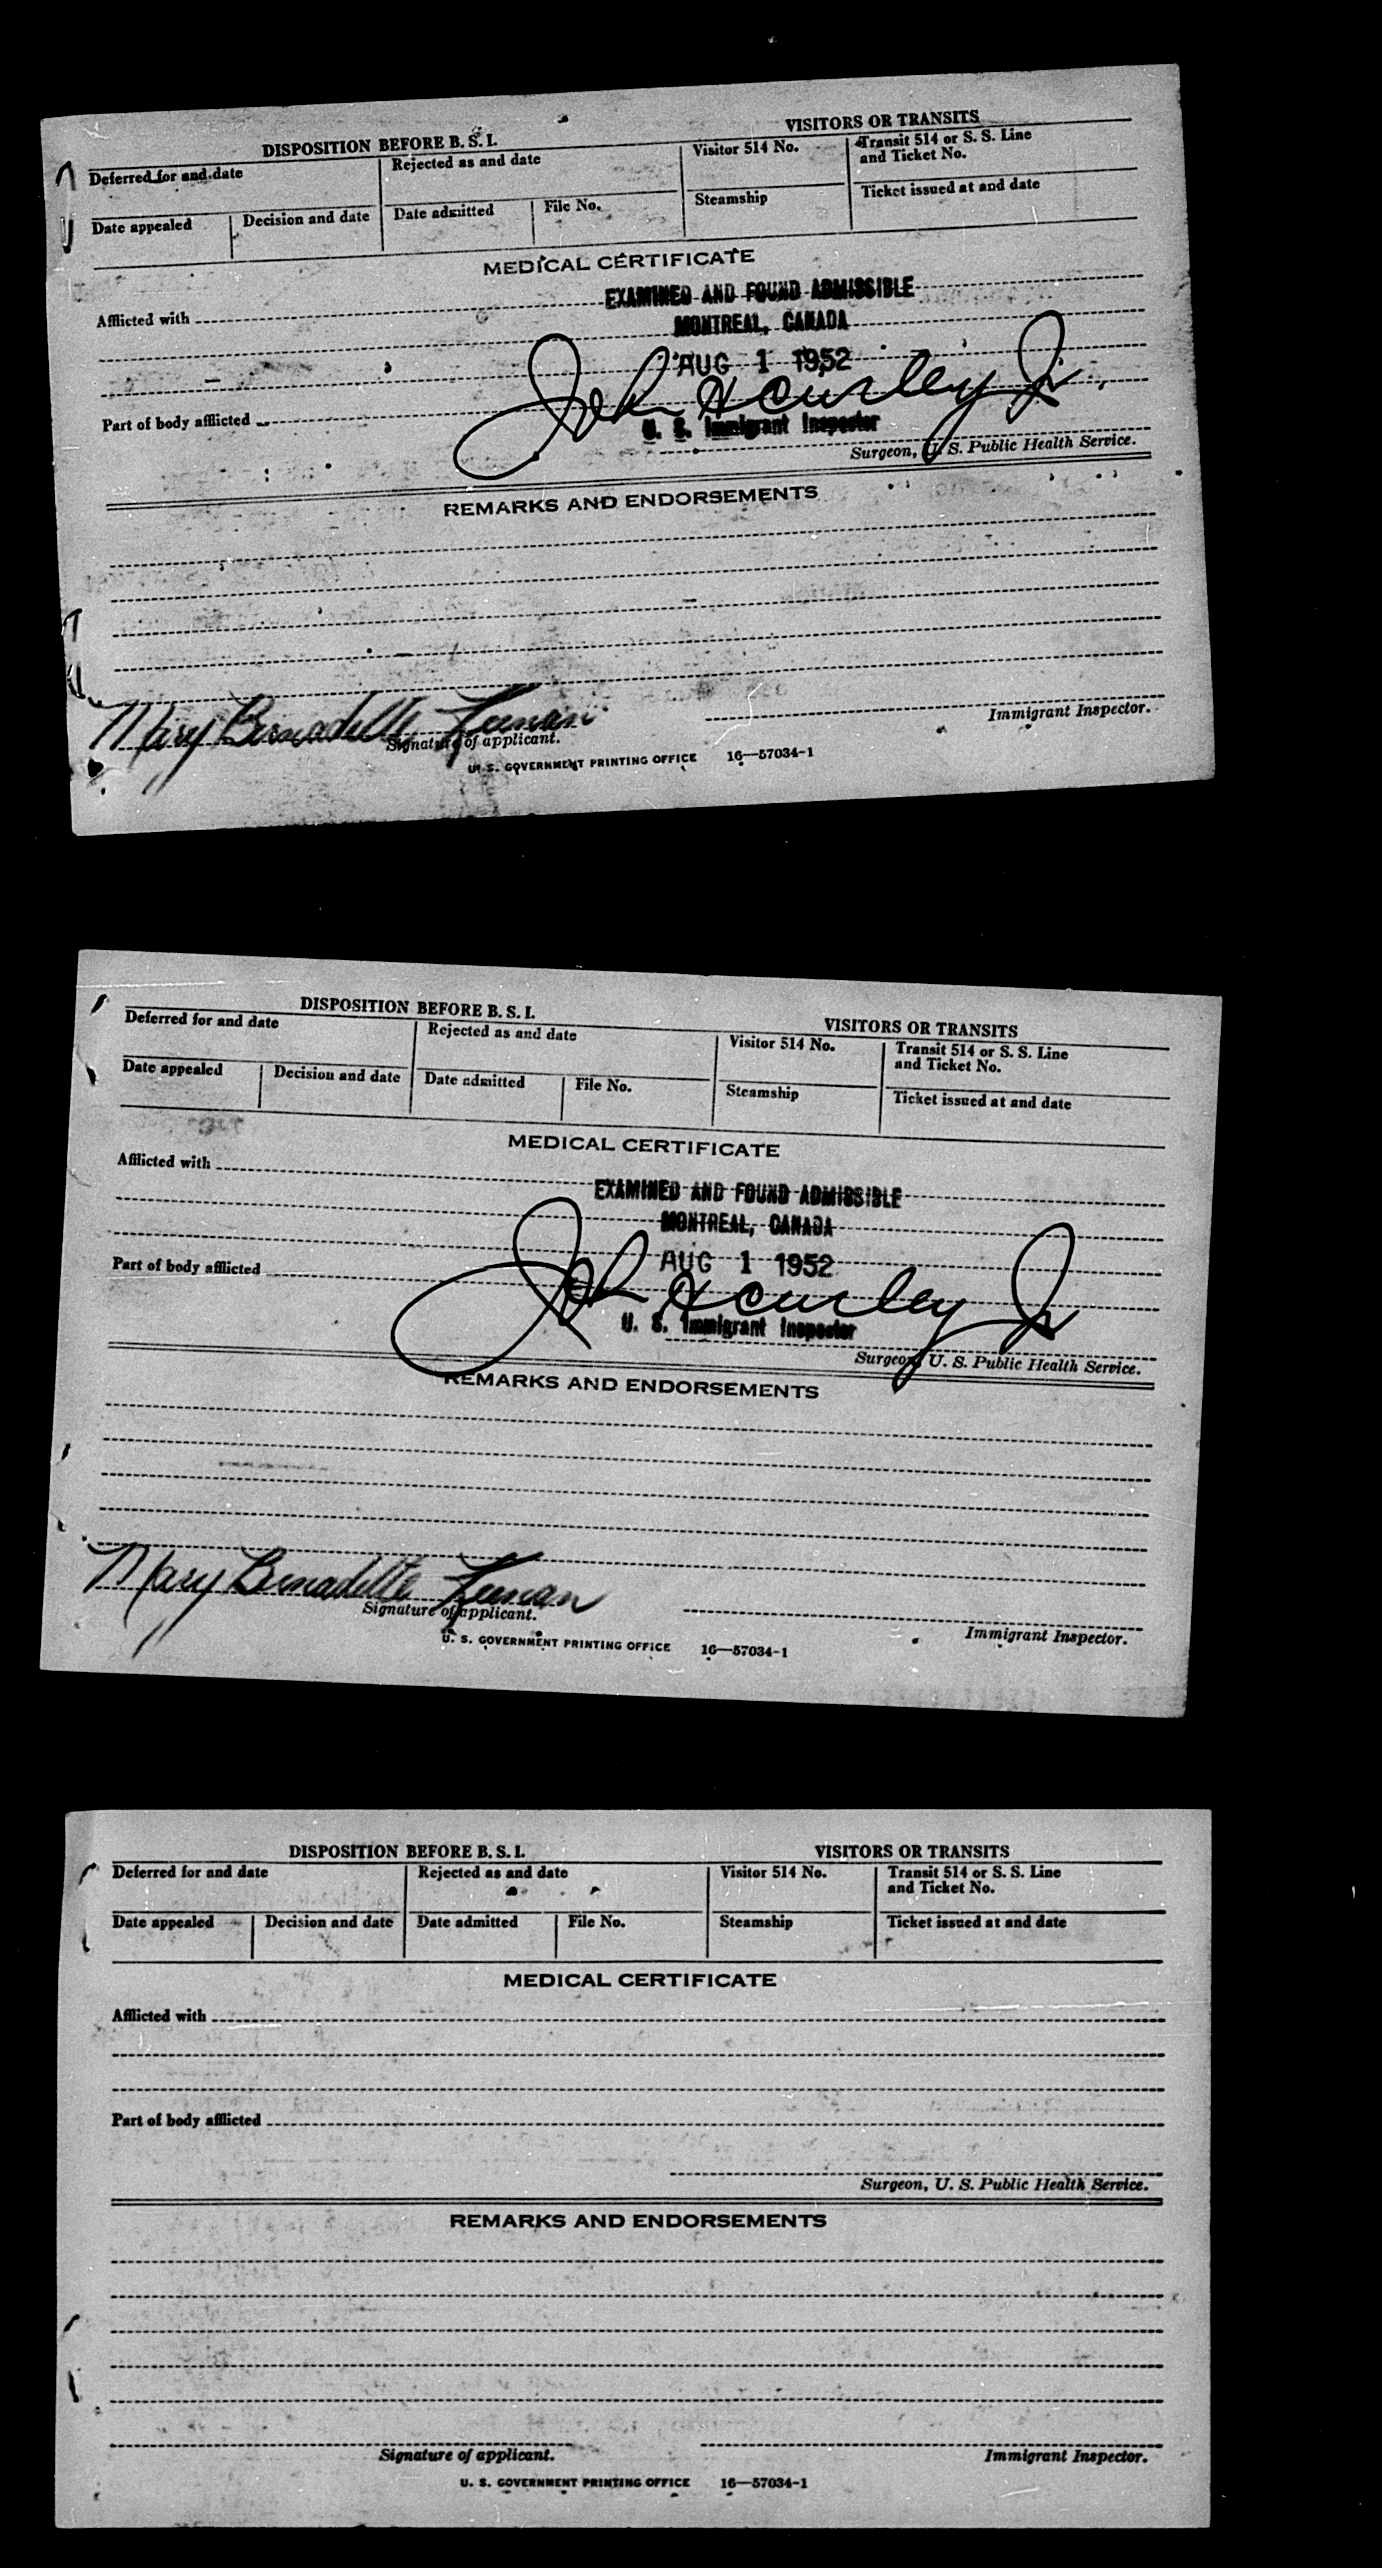 DISPOSITION BEFORE B. S. I.
VISITORS OR TRANSITS
Deferred for and date
Rejected as and date
Visitor 514 No.
Transit 514 or S. S. Line
and Ticket No.
Date appealed
Decision and date
Date admitted
File No.
Steamship
Ticket issued at and date
MEDICAL CERTIFICATE
Afflicted with
EXAMINED AND FOUND ADMISSIBLE
MONTREAL, CANADA
AUG 1 1952
John H Curley Jr.
Part of body afflicted
U. S. Immigrant Inspector
Surgeon, U. S. Public Health Service.
REMARKS AND ENDORSEMENTS
Mary Bernadette Keenan
Signature of applicant.
Immigrant Inspector.
U. S. GOVERNMENT PRINTING OFFICE 16—57034-1
DISPOSITION BEFORE B. S. I.
VISITORS OR TRANSITS
Deferred for and date
Rejected as and date
Visitor 514 No.
Transit 514 or S. S. Line
and Ticket No.
Date appealed
Decision and date
Date admitted
File No.
Steamship
Ticket issued at and date
MEDICAL CERTIFICATE
Afflicted with
EXAMINED AND FOUND ADMISSIBLE
MONTREAL, CANADA
AUG 1 1952
Part of body afflicted
John H Curley Jr
U. S. Immigrant Inspector
Surgeon, U. S. Public Health Service.
REMARKS AND ENDORSEMENTS
Mary Bernadette Keenan
Signature of applicant.
Immigrant Inspector.
U. S. GOVERNMENT PRINTING OFFICE 16—57034-1
DISPOSITION BEFORE B. S. I.
VISITORS OR TRANSITS
Deferred for and date
Rejected as and date
Visitor 514 No.
Transit 514 or S. S. Line
and Ticket No.
Date appealed
Decision and date
Date admitted
File No.
Steamship
Ticket issued at and date
MEDICAL CERTIFICATE
Afflicted with
Part of body afflicted
Surgeon, U. S. Public Health Service.
REMARKS AND ENDORSEMENTS
Signature of applicant.
Immigrant Inspector.
U. S. GOVERNMENT PRINTING OFFICE 16—57034-1